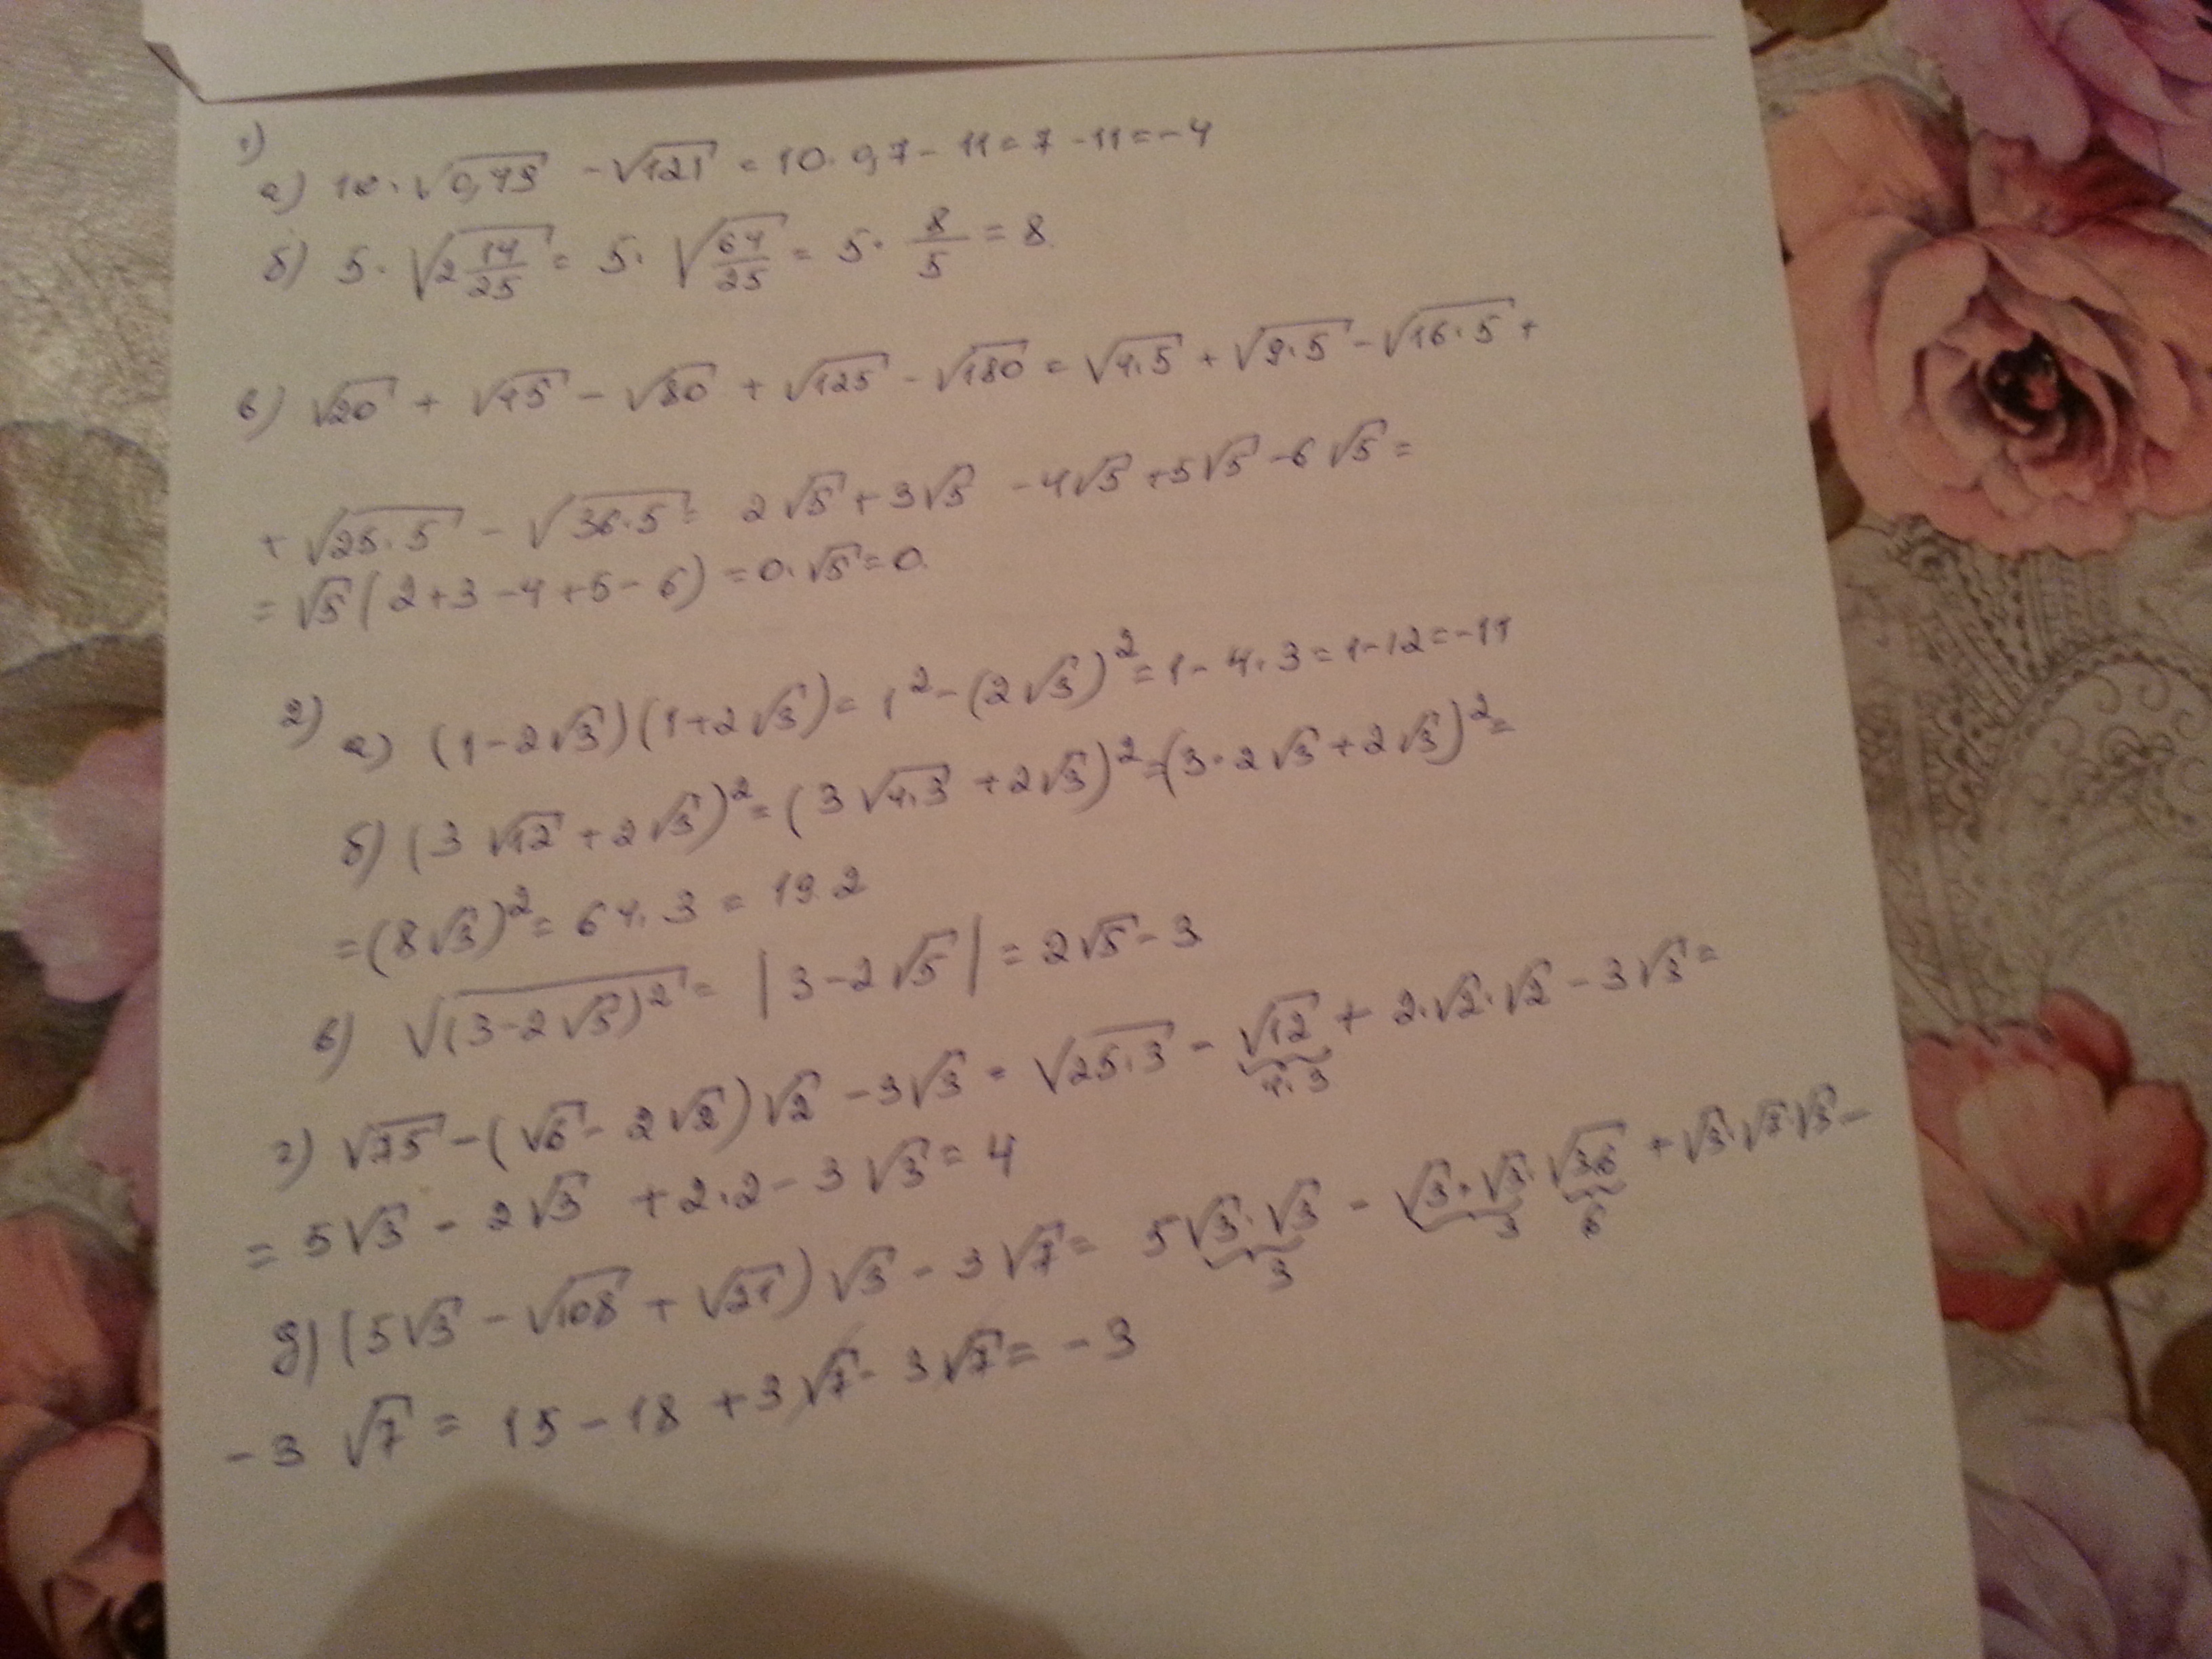 1)
а) 10·√0,49 - √121 = 10·0,7 - 11 = 7 - 11 = -4
б) 5·√2 14/25 = 5·√64/25 = 5·8/5 = 8
в) √20 + √45 - √80 + √125 - √180 = √4·5 + √9·5 - √16·5 +
+ √25·5 - √36·5 = 2√5 + 3√5 - 4√5 + 5√5 - 6√5 =
= √5(2+3-4+5-6) = 0·√5 = 0.
2) а) (1-2√3)(1+2√3) = 1² - (2√3)² = 1 - 4·3 = 1-12 = -11
б) (3√12 + 2√3)² = (3√4·3 + 2√3)² = (3·2√3 + 2√3)² =
= (8√3)² = 64·3 = 192
в) √(3-2√5)² = |3-2√5| = 2√5 - 3
г) √75 - (√6 - 2√2)√2 - 3√3 = √25·3 - √12 + 2·√2·√2 - 3√3 =
4·3
= 5√3 - 2√3 + 2·2 - 3√3 = 4
д) (5√3 - √108 + √21)√3 - 3√7 = 5√3·√3 - √3·√3·√36 + √3·√7·√3 -
3 3 6
-3√7 = 15 - 18 + 3√7 - 3√7 = -3